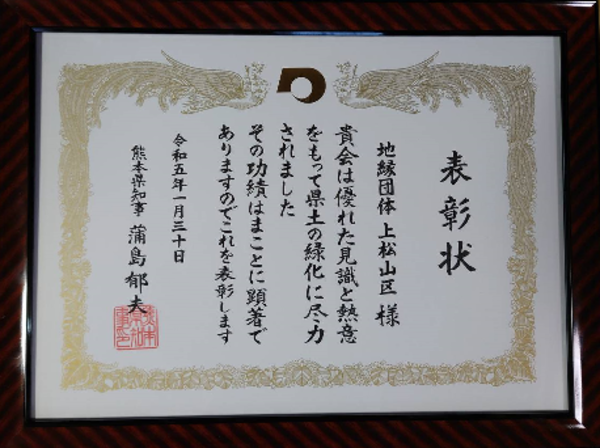 表彰状
地縁団体 上松山区 様
貴会は優れた見識と熱意
をもって県土の緑化に尽力
されました
その功績はまことに顕著で
ありますのでこれを表彰します
令和五年一月三十日
熊本県知事 蒲島郁夫